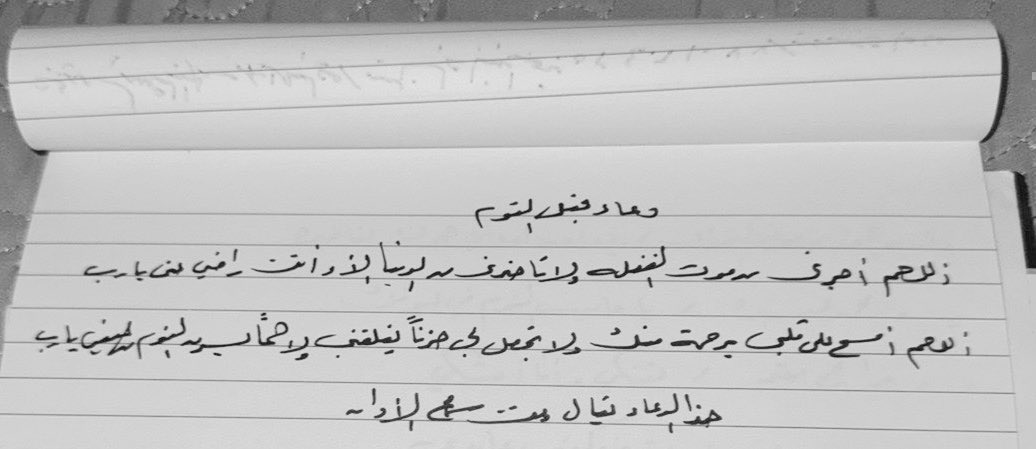 دعاء قبل النوم
اللهم أجرني من موت الغفله ولا تاخذني من الدنيا إلا و أنت راضي عني يارب
اللهم أمسح على قلبي برحمة منك ولا تجعل لي حزناً يقلقني ولا هماً يسرق النوم من عيني يارب
هذا الدعاء يقال وقت سماع الأذان